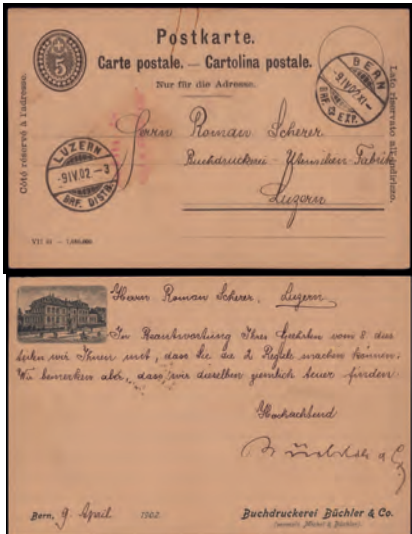 Postkarte.
Carte postale. — Cartolina postale.
Nur für die Adresse.
5
Côté réservé à l'adresse.
Lato riservato all'indirizzo.
BERN
-9.IV.02.XI-
BRF. EXP.
LUZERN
-9.IV.02.-3
BRF. DISTR.
Herrn Roman Scherer
Buchdruckerei-Utensilien-Fabrik
Luzern
VII 01 — 7,000,000.
Herrn Roman Scherer, Luzern
In Beantwortung Ihres Geehrten vom 8 dies
teilen wir Ihnen mit, dass Sie die 2 Reglets machen können;
Wir bemerken aber, dass wir dieselben ziemlich teuer finden.
Hochachtend
Büchler & Co
Bern, 9. April 1902.
Buchdruckerei Büchler & Co.
(vormals Michel & Büchler).